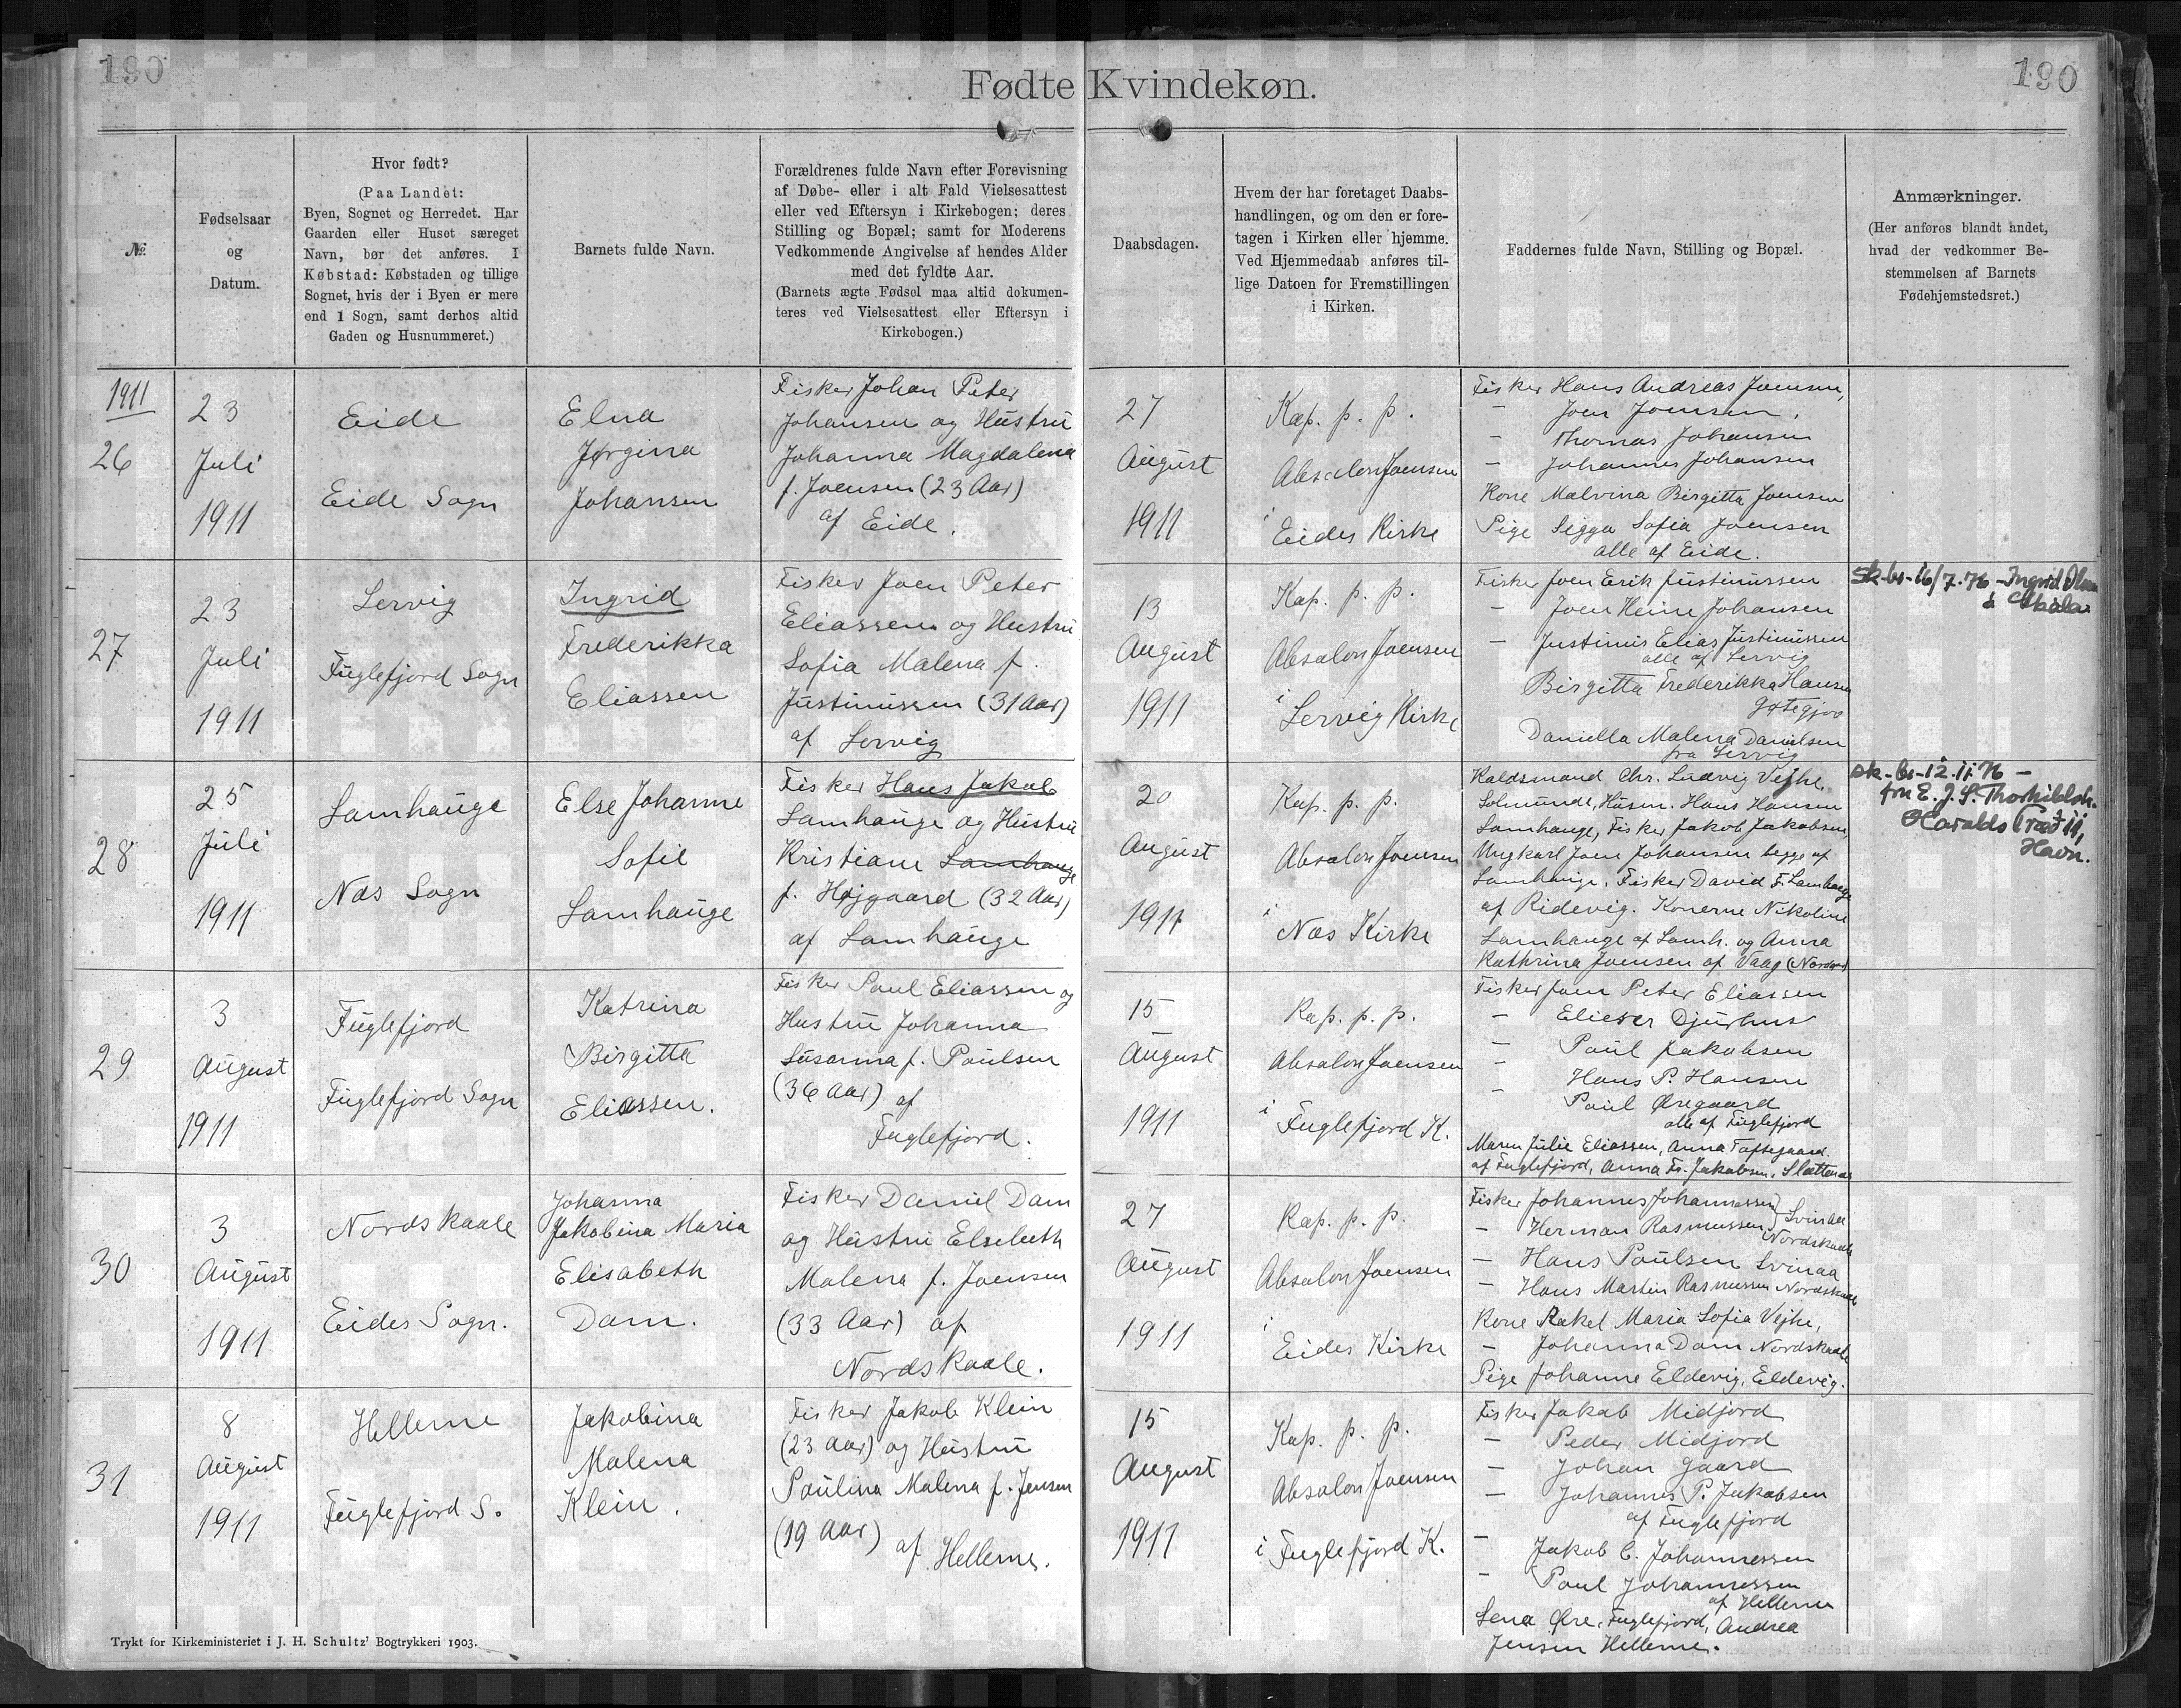 190
190
Fødte Kvindekøn.
№.
Fødselsaar
og
Datum.
Hvor født?
(Paa Landet:
Byen, Sognet og Herredet. Har
Gaarden eller Huset særeget
Navn, bør det anføres. I
Købstad: Købstaden og tillige
Sognet, hvis der i Byen er mere
end 1 Sogn, samt derhos altid
Gaden og Husnummeret.)
Barnets fulde Navn.
Forældrenes fulde Navn efter Forevisning
af Døbe- eller i alt Fald Vielsesattest
eller ved Eftersyn i Kirkebogen; deres
Stilling og Bopæl; samt for Moderens
Vedkommende Angivelse af hendes Alder
med det fyldte Aar.
(Barnets ægte Fødsel maa altid dokumen-
teres ved Vielsesattest eller Eftersyn i
Kirkebogen.)
Daabsdagen.
Hvem der har foretaget Daabs-
handlingen, og om den er fore-
tagen i Kirken eller hjemme.
Ved Hjemmedaab anføres til-
lige Datoen for Fremstillingen
i Kirken.
Faddernes fulde Navn, Stilling og Bopæl.
Anmærkninger.
(Her anføres blandt andet,
hvad der vedkommer Be-
stemmelsen af Barnets
Fødehjemstedsret.)
1911
26
23
Juli
1911
Eide
Eide Sogn
Elna
Jørgina
Johansen
Fisker Johan Peter
Johansen og Hustru
Johanna Magdalena
f. Joensen (23 Aar)
af Eide.
27
August
1911
Kap. p. p.
Absalon Joensen
i
Eides Kirke
Fisker Hans Andreas Joensen,
- Joen Joensen.
- Thomas Johansen
- Johannes Johansen
Kone Malvina Birgitta Joensen
Pige Sigga Sofia Joensen
alle af Eide.
27
23
Juli
1911
Lervig
Fuglefjord Sogn
Ingrid
Frederikka
Eliassen
Fisker Joen Peter
Eliassen og Hustru
Sofia Malena f.
Justinussen (31 Aar)
af Lervig
13
August
1911
Kap. p. p.
Absalon Joensen
i
Lervig Kirke
Fisker Joen Erik Justinussen
- Joen Heine Johansen
- Justinus Elias Justinussen
alle af Lervig
Birgitta Frederikka Hansen
Gøtegjov
Daniella Malena Danielsen
fra Lervig
Sk-br-16/7.76 - Ingrid
28
25
Juli
1911
Lamhauge
Næs Sogn
Else Johanne
Sofie
Lamhauge
Fisker Hans Jakob
Lamhauge og Hustru
Kristiane Lamhauge
f. Højgaard (32 Aar)
af Lamhauge
20
August
1911
Kap. p. p.
Absalon Joensen
i
Næs Kirke
Kaldsmand Chr. Ludvig Vejhe,
Solmunde, Husm. Hans Hansen
Lamhauge, Fisker Jakob Jakobsen,
Ungkarl Joen Johansen begge af
Lamhauge. Fisker David F. Lamhauge
af Ridevig. Konerne Nikoline
Lamhauge af Lamh. og Anna
Kathrina Joensen af Vaag (Nordø)
sk-br-12.11.76 -
fru E. J. S. Thorkildsh.
Haralds træð 11,
Havn.
29
3
August
1911
Fuglefjord
Fuglefjord Sogn
Katrina
Birgitta
Eliassen.
Fisker Poul Eliassen og
Hustru Johanna
Susanna f. Poulsen
(36 Aar) af
Fuglefjord.
15
August
1911
Kap. p. p.
Absalon Joensen
i
Fuglefjord K.
Fisker Joen Peter Eliassen
- Elieser Djurhus
- Poul Jakobsen
- Hans P. Hansen
- Poul Øregaard
alle af Fuglefjord
Maren Julie Eliassen, Anna Toftegaard
af Fuglefjord, Anna Fr. Jakobsen, Slættenæs
30
3
August
1911
Nordskaale
Eides Sogn.
Johanna
Jakobina Maria
Elisabeth
Dam.
Fisker Daniel Dam
og Hustru Elsebeth
Malena f. Joensen
(33 Aar) af
Nordskaale.
27
August
1911
Kap. p. p.
Absalon Joensen
i
Eides Kirke
Fisker Johannes Johannessen Svinaa
- Herman Rasmussen Nordskaale
- Hans Poulsen Svinaa
- Hans Martin Rasmussen Nordskaale
Kone Rakel Maria Sofia Vejhe,
- Johanna Dam Nordskaale
Pige Johanne Eldevig, Eldevig.
31
8
August
1911
Hellerne
Fuglefjord S.
Jakobina
Malena
Klein.
Fisker Jakob Klein
(23 Aar) og Hustru
Poulina Malena f. Jensen
(19 Aar) af Hellerne.
15
August
1911
Kap. p. p.
Absalon Joensen
i Fuglefjord K.
Fisker Jakob Midjord
- Peder Midjord
- Johan Gaard
- Johannes P. Jakobsen
af Fuglefjord
- Jakob C. Johannessen
- Poul Johannessen
af Hellerne
Lena Øre, Fuglefjord, Andrea
Jensen Hellerne.
Trykt for Kirkeministeriet i J. H. Schultz' Bogtrykkeri 1903.